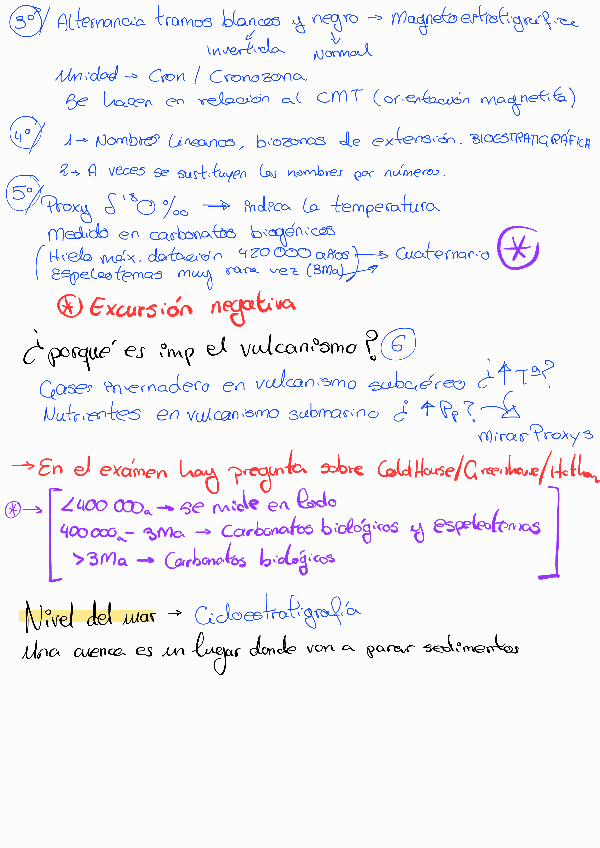 3º Alternancia tramos blancos y negro → Magnetoestratigráfica
invertida Normal
Unidad → Cron / Cronozona
Se hacen en relación al CMT (orientación magnetita)
4º 1→ Nombres Lineanos, biozonas de extensión. BIOESTRATIGRÁFICA
2→ A veces se sustituyen los nombres por números.
5º Proxy δ18O ‰ → indica la temperatura
Medido en carbonatos biogénicos
(Hielo máx. datación 420 000 años) → Cuaternario *
Espeleotemas muy rara vez (3Ma) →
* Excursión negativa
¿porqué es imp el vulcanismo? 6
Gases invernadero en vulcanismo subaéreo ¿↑Tª?
Nutrientes en vulcanismo submarino ¿↑Pp? →
Mirar Proxys
→ En el exámen hay pregunta sobre ColdHouse/Greenhouse/Hothouse
* → <400 000a → se mide en todo
400 000a - 3Ma → Carbonatos biológicos y espeleotemas
>3Ma → Carbonatos biológicos
Nivel del mar → Cicloestratigrafía
Una cuenca es un lugar donde van a parar sedimentos